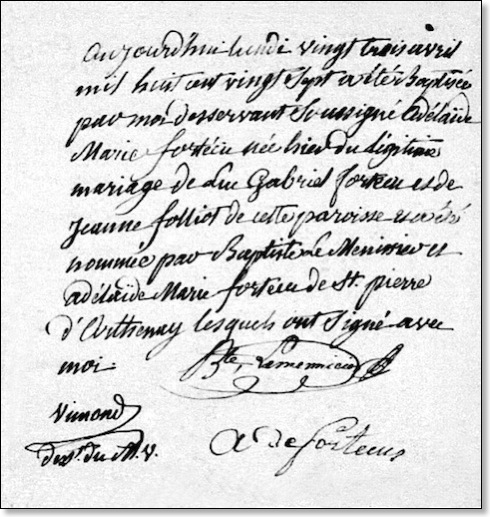 aujourd'hui lundi vingt trois avril
mil huit cent vingt Sept a été Baptisée
par moi desservant Soussigné adélaïde
Marie fortécu née hier du légitime
mariage de Luc Gabriel forteću et de
Jeanne folliot de cette paroisse et a été
nommée par Baptiste Le Menissier et
adélaïde Marie fortécu de St. pierre
d'Arthenay lesquels ont Signé avec
moi.
Bte. Lemennicier
Vimond
dest. du M. V.
A de fortecu